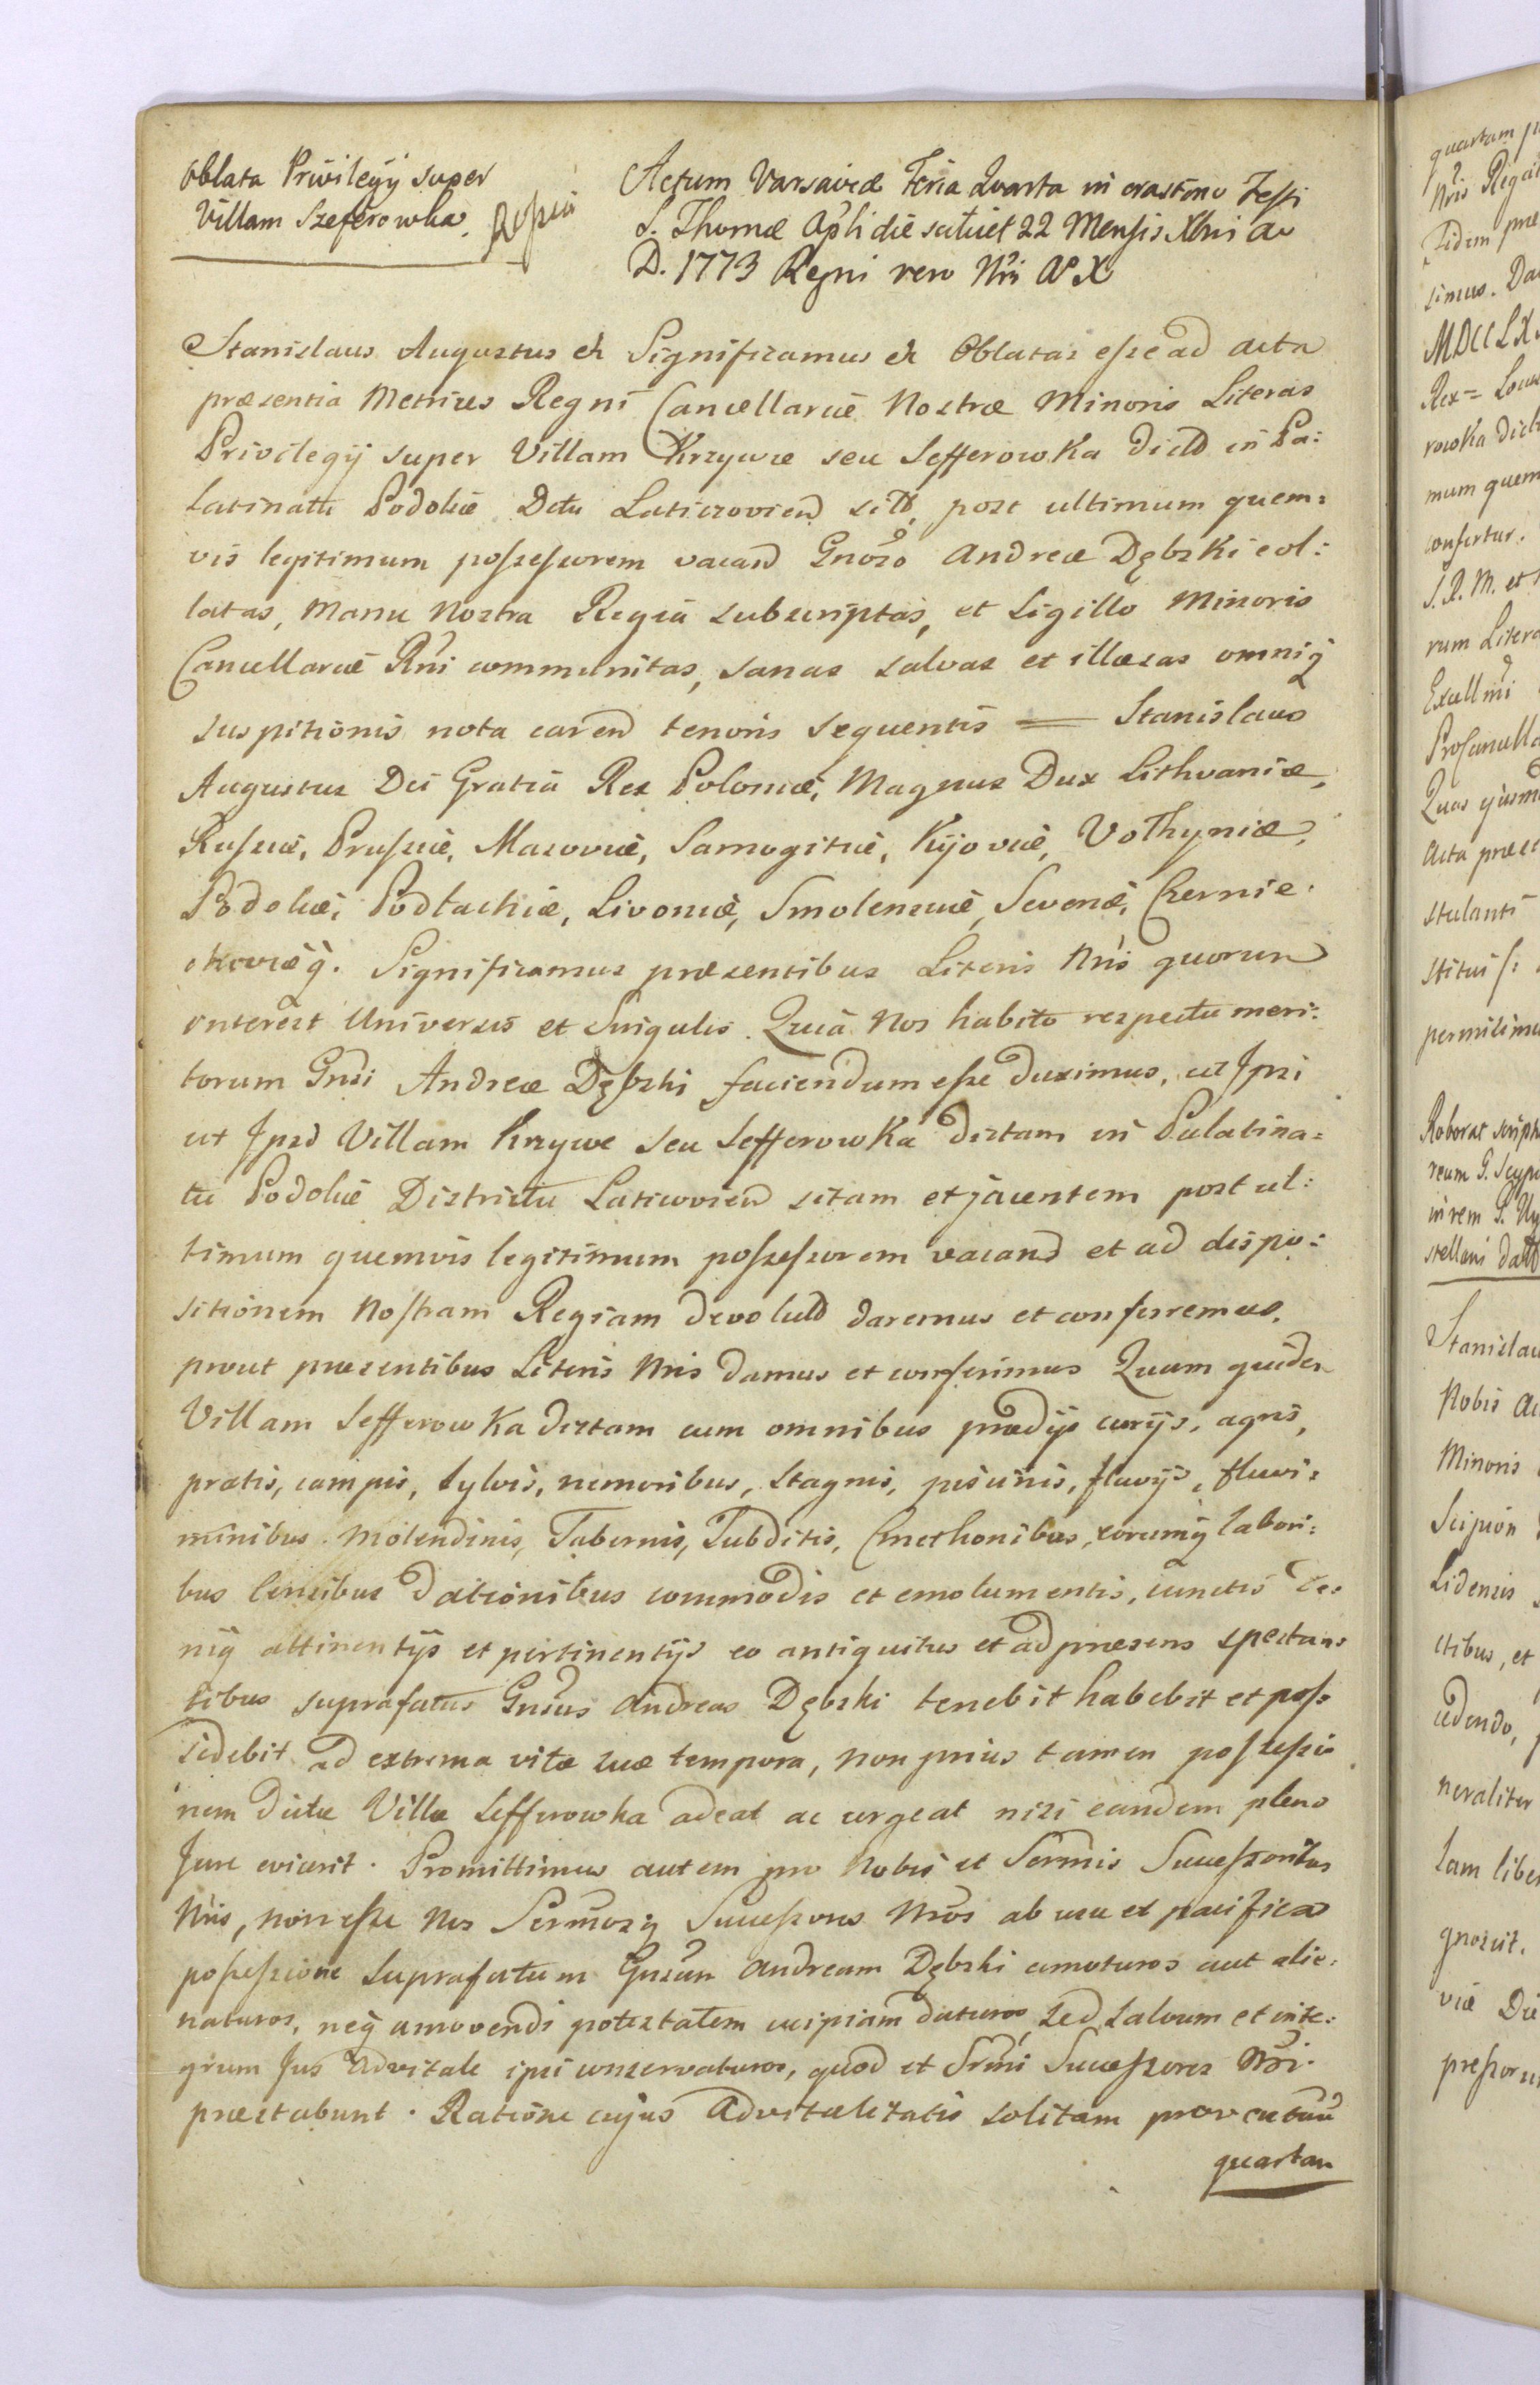 Oblata Privilegÿ super
Villam Szeferowka.
Actum Varsaviæ Feria Quarta in crastino Festi
S. Thomæ Apli die scilicet 22 Mensis Xbris Ao
D. 1773 Regni vero Nri Ao X
Stanislaus Augustus et Significamus et Oblatas esse ad acta
præsentia Metrices Regni Cancellariæ Nostræ Minoris Literas
Privilegÿ super Villam Krzywe seu Sefferowka dictd in Pa:
latinatu Podoliæ Dctu Laticzoviend sitd, post ultimum quem:
vis legitimum possessorem vacand Gnoso Andreæ Dębski col:
latas, Manu Nostra Regia subscriptas, et Sigillo Minoris
Cancellariæ Rni communitas, sanas salvas et illæsas omniq
suspitionis nota carend tenoris sequentis = Stanislaus
Augustus Dei Gratia Rex Poloniæ, Magnus Dux Lithvaniæ,
Russiæ, Prussiæ, Masoviæ, Samogitiæ, Kijoviæ, Volhyniæ,
Podoliæ, Podlachiæ, Livoniæ, Smolensciæ, Severiæ, Czernie:
choviæq. Significamus præsentibus Literis Nris quorum
interest Universis et Singulis. Quia Nos habito respectu meri:
torum Gnsi Andreæ Dębski faciendum esse duximus, ut Ipsi
ut Ipsd Villam Krzywe seu Sefferowka dictam in Palatina:
tu Podoliæ Districtu Laticzoviend sitam et jacentem post ul:
timum quemvis legitimum possessorem vacand et ad dispo:
sitionem Nostram Regiam devolutd daremus et conferremus,
prout præsentibus Literis Nris damus et conferimus Quam quidem
Villam Sefferowka dictam cum omnibus prædÿs curÿs, agris,
pratis, campis, sylvis, nemoribus, stagnis, piscinis, fluvÿs, fluvi:
minibus. Molendinis, Tabernis, Subditis, Cmethonibus, eorumq labori:
bus Censibus dationibus commodis et emolumentis, cunctis de:
niq attinentÿs et pertinentÿs eo antiquitus et ad præsens spectan:
tibus suprafatus Gnsus Andreas Dębski tenebit habebit et poss:
sidebit ad extrema vitæ suæ tempora, non prius tamen possessio
nem dictæ Villæ Sefferowka adeat ac urgeat nisi eandem pleno
Jure evicerit. Promittimus autem pro Nobis et Sermis Successoribus
Nris, non esse Nos Sermosq Successores Nros ab usu et pacifica
possessione suprafatum Gnsum Andream Dębski amoturos aut alie:
naturos, neq amovendi potestatem cuipiam daturos, sed salvum et inte:
grum Jus advitale ipsi conservaturos, quod et Srmi Successores Nri
præstabunt. Ratione cujus advitalitatis solitam proventuum
quartam